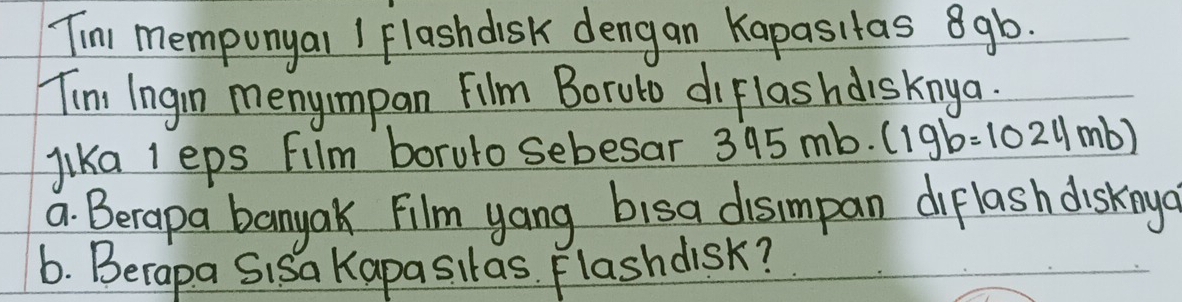 Tini mempunyai 1 Flashdisk dengan Kapasitas 8gb.
Tini Ingin menyimpan Film Boruto diflashdisknya.
Jika 1 eps Film boruto sebesar 395 mb. (1gb=1024mb)
a. Berapa banyak Film yang bisa disimpan diflashdisknya
b. Berapa Sisa Kapasitas Flashdisk?